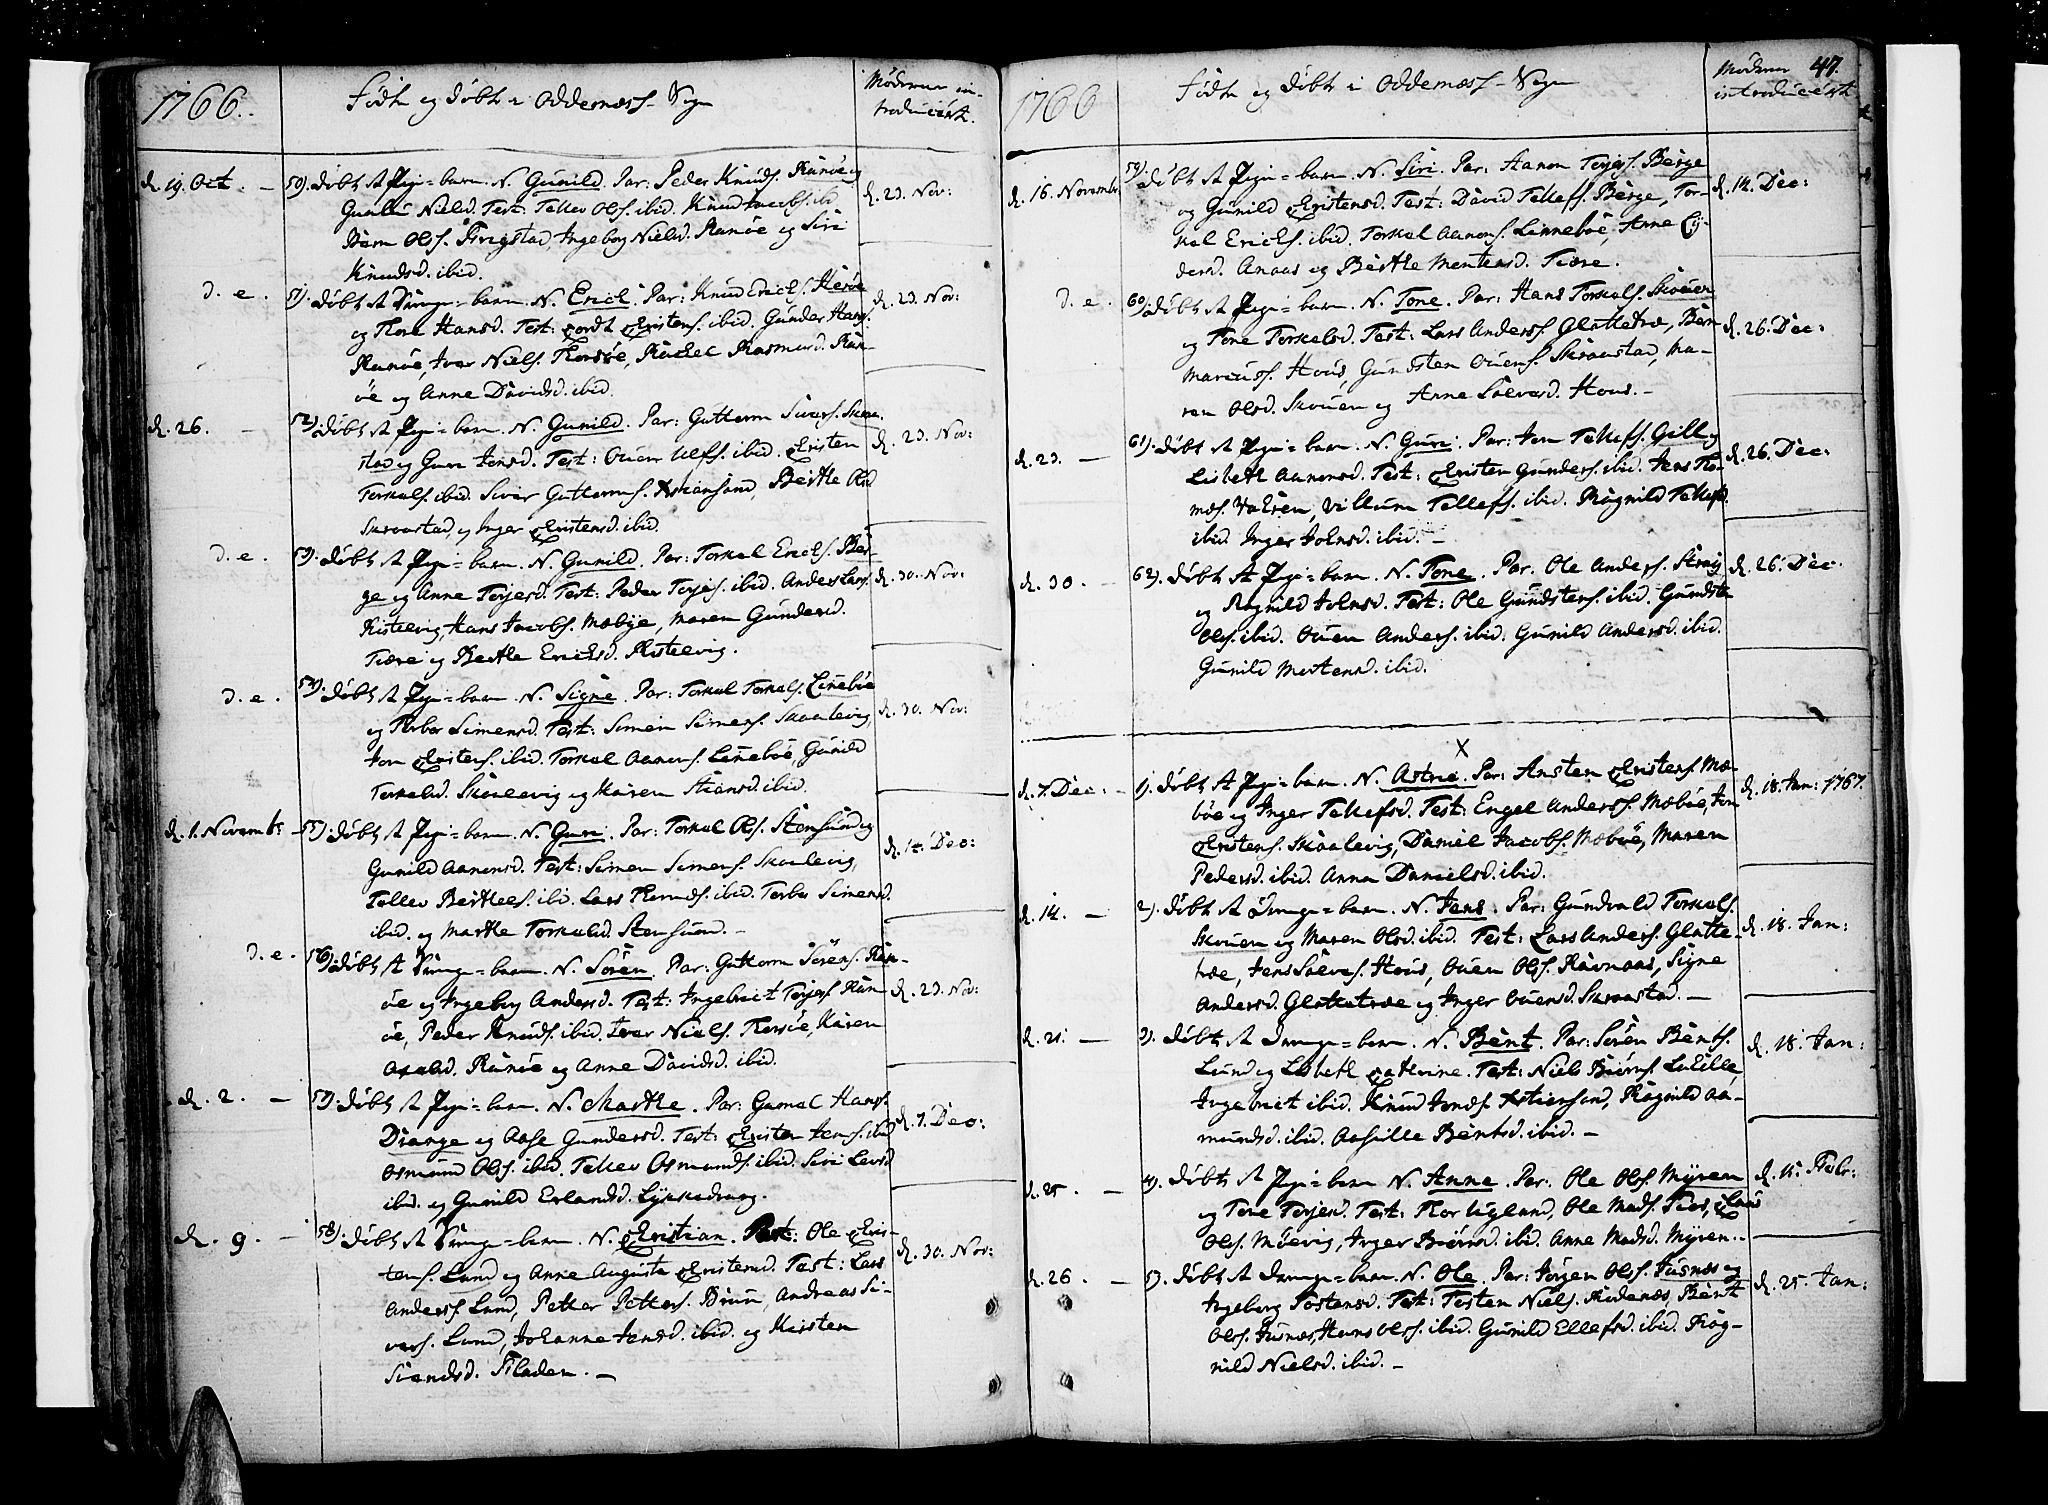 1766. Födte og döbte i Oddernæss-Sogn
Mödernes in-
troducerte.
d. 19. Oct. — 50). Döbt et Pige-barn. N. Gunild. Par: Peder Knuds. Randöe og
Niels d. Test: Tellev Ols. ibid. Knud Jacobs. ib
Ols. Frigstad, Ingeborg Nielsd. Randöe og Siri
Knudsd. ibid.
d. 23. Nov:
d. e. 51). Döbt et Drenge-barn. N. Erich. Par: Knud Erichs. Heröe
og Tore Hansd. Test: Cordt Cristens. ibid. Gunder Hans.
Randöe, Iver Niels. Korsöe, Rachel Rasmusd. Ran-
öe og Anne Davidsd. ibid.
d. 23. Nov:
d. 26. — 52). Döbt et Pige-barn. N. Gunild. Par: Guttorm Sivers. Skraa-
stad og Guri Jensd. Test: Ouen Ulfs. ibid. Cristen
Torkels. ibid. Siver Guttorms. Xstiansand, Berthe Olsd
Skraastad, og Inger Cristensd. ibid.
d. 23. Nov:
d. e. 53). Döbt et Pige-barn. N. Gunild. Par: Torkel Erichs. Ber-
ge og Anne Terjesd. Test: Peder Terjes. ibid. Anders Lars.
Kistevig, Hans Jacobs. Mæbye, Maren Gundersd.
Tiære og Berthe Erichsd. Kistevig.
d. 30. Nov:
d. e. 54). Döbt et Pige-barn. N. Signe. Par: Torkel Torkels. Linneböe
og Torber Simensd. Test: Simen Simens. Skaalevig,
Jon Cristens. ibid. Torkel Aanens. Linneböe, Gunild
Torkelsd. Skaalevig og Karen Stiansd. ibid.
d. 30. Nov:
d. 1. Novembr — 55). Döbt et Pige-barn. N. Guri. Par: Torkel Ols. Stensund og
Gunild Aanensd. Test: Simen Simens. Skaalevig,
Tellev Berthels. ibi. Lars Tormods. ibid. Torber Simensd.
ibid. og Marthe Torkelsd. Stensund. —
d. 14. Dec:
d. e. 56). Döbt et Drenge-barn. N. Sören. Par: Guttorm Sörens. Ran-
öe og Ingeborg Andersd. Test: Ingebrict Terjes. Ran-
öe, Peder Knuds. ibid. Iver Niels. Korsöe, Karen
Randöe og Anne Davidsd. ibid.
d. 23. Nov:
d. 2. — 57). Döbt et Pige-barn. N. Marthe. Par: Gunnel Hans.
Drange og Aase Gundersd. Test: Cristen Jens. ibid
Osmund Ols. ibid. Tellev Osmunds. ibid. Siri Levsd
ibid. og Gunild Erlandsd. Lykkedrang.
d. 7. Dec:
d. 9. — 58). Döbt et Drenge-barn. N. Cristian. Par: Ole Cris-
tens. Lund og Anne Augusta Cristensd. Test: Lars
Anders. Lund, Petter Petters. Bruun, Andreas Si-
vers. Lund, Johanne Jensd. ibid. og Kirsten
Svendsd. Fladen. —
d. 30. Nov:
1766 Födte og döbte i Oddernæss-Sogn
Mödernes 47.
introducerte
d. 16. Novembr. 59). Döbt et Pige-barn. N. Siri. Par: Aanon Terjes. Berge
og Gunild Cristensd. Test: David Tellefs. Berge, Tor-
kel Erichs. ibid. Torkel Aanons. Linneböe, Anne Gij-
dersd. Anaas og Berthe Mortensd. Tiære.
d. 14. Dec:
d. e. 60). Döbt et Pige-barn. N. Tone. Par: Hans Torkels. Skouen
og Tone Torkelsd. Test: Lars Anders. Glattetræ, Bern
Marcuss. Hous, Gundsten Ouens. Skraastad, Ma-
ren Olsd. Skouen og Anne Salvesd. Hous. —
d. 26. Dec:
d. 23. — 61). Döbt et Pige-barn. N. Guri. Par: Jon Tellefs. Gill og
Lisbeth Aanensd. Test: Cristen Gunders. ibid. Jens To-
mes. Valöen, Villum Tellefs. ibid. Rognild Tellefsd.
ibid. Inger Johnsd. ibid. —
d. 26. Dec:
d. 30. — 62). Döbt et Pige-barn. N. Tone. Par: Ole Anders. Stray
og Rognild Johnsd. Test: Ole Gundstens. ibid. Gundsten
Ols. ibid. Ouen Anders. ibid. Gunild Andersd. ibid.
Gunild Mortensd. ibid.
d. 26. Dec.
X
d. 7. Dec: — 1). Döbt et Pige-barn. N. Astrie. Par: Ansten Cristens. Mæ-
böe og Inger Tellefsd. Test: Engel Anders. Mæböe, Jon
Cristens. Skaalevig, Daniel Jacobs. Mæböe, Maren
Pedersd. ibid. Anne Danielsd. ibid.
d. 18. Jan: 1767.
d. 14. — 2). Döbt et Drenge-barn. N. Jens. Par: Gundvald Torkels.
Skouen og Maren Olsd. ibid. Test: Lars Anders. Glatte-
træ, Jens Salves. Hous, Ouen Ols. Ravnaas, Signe
Andersd. Glattetræ og Inger Ouensd. Skraastad. —
d. 18. Jan:
d. 21. — 3). Döbt et Drenge-barn. N. Bent. Par: Sören Bents.
Lund og Lisbeth Catherine. Test: Niels Biörns. Lulille,
Ingebrict ibid. Knud Jens. Xstiansand, Rognild Aa-
mundsd. ibid. Aasille Bentsd. ibid. —
d. 18. Jan:
d. 25. — 4). Döbt et Pige-barn. N. Anne. Par: Ole Ols. Myren
og Tone Terjesd. Test: Thor Ugland, Ole Mads. Lars
Ols. Möevig, Inger Biörnsd. ibid. Anne Madsd. Myren. —
d. 15. Febr:
d. 26. — 5). Döbt et Drenge-barn. N. Ole. Par: Jörgen Ols. Jusnes og
Ingeborg Tostensd. Test: Tosten Niels. Rodenes, Bent
Ols. Jusnæs, Hans Ols. ibid. Gunild Ellefsd. ibid. Rog-
nild Nielsd. ibid. —
d. 25. Jan: